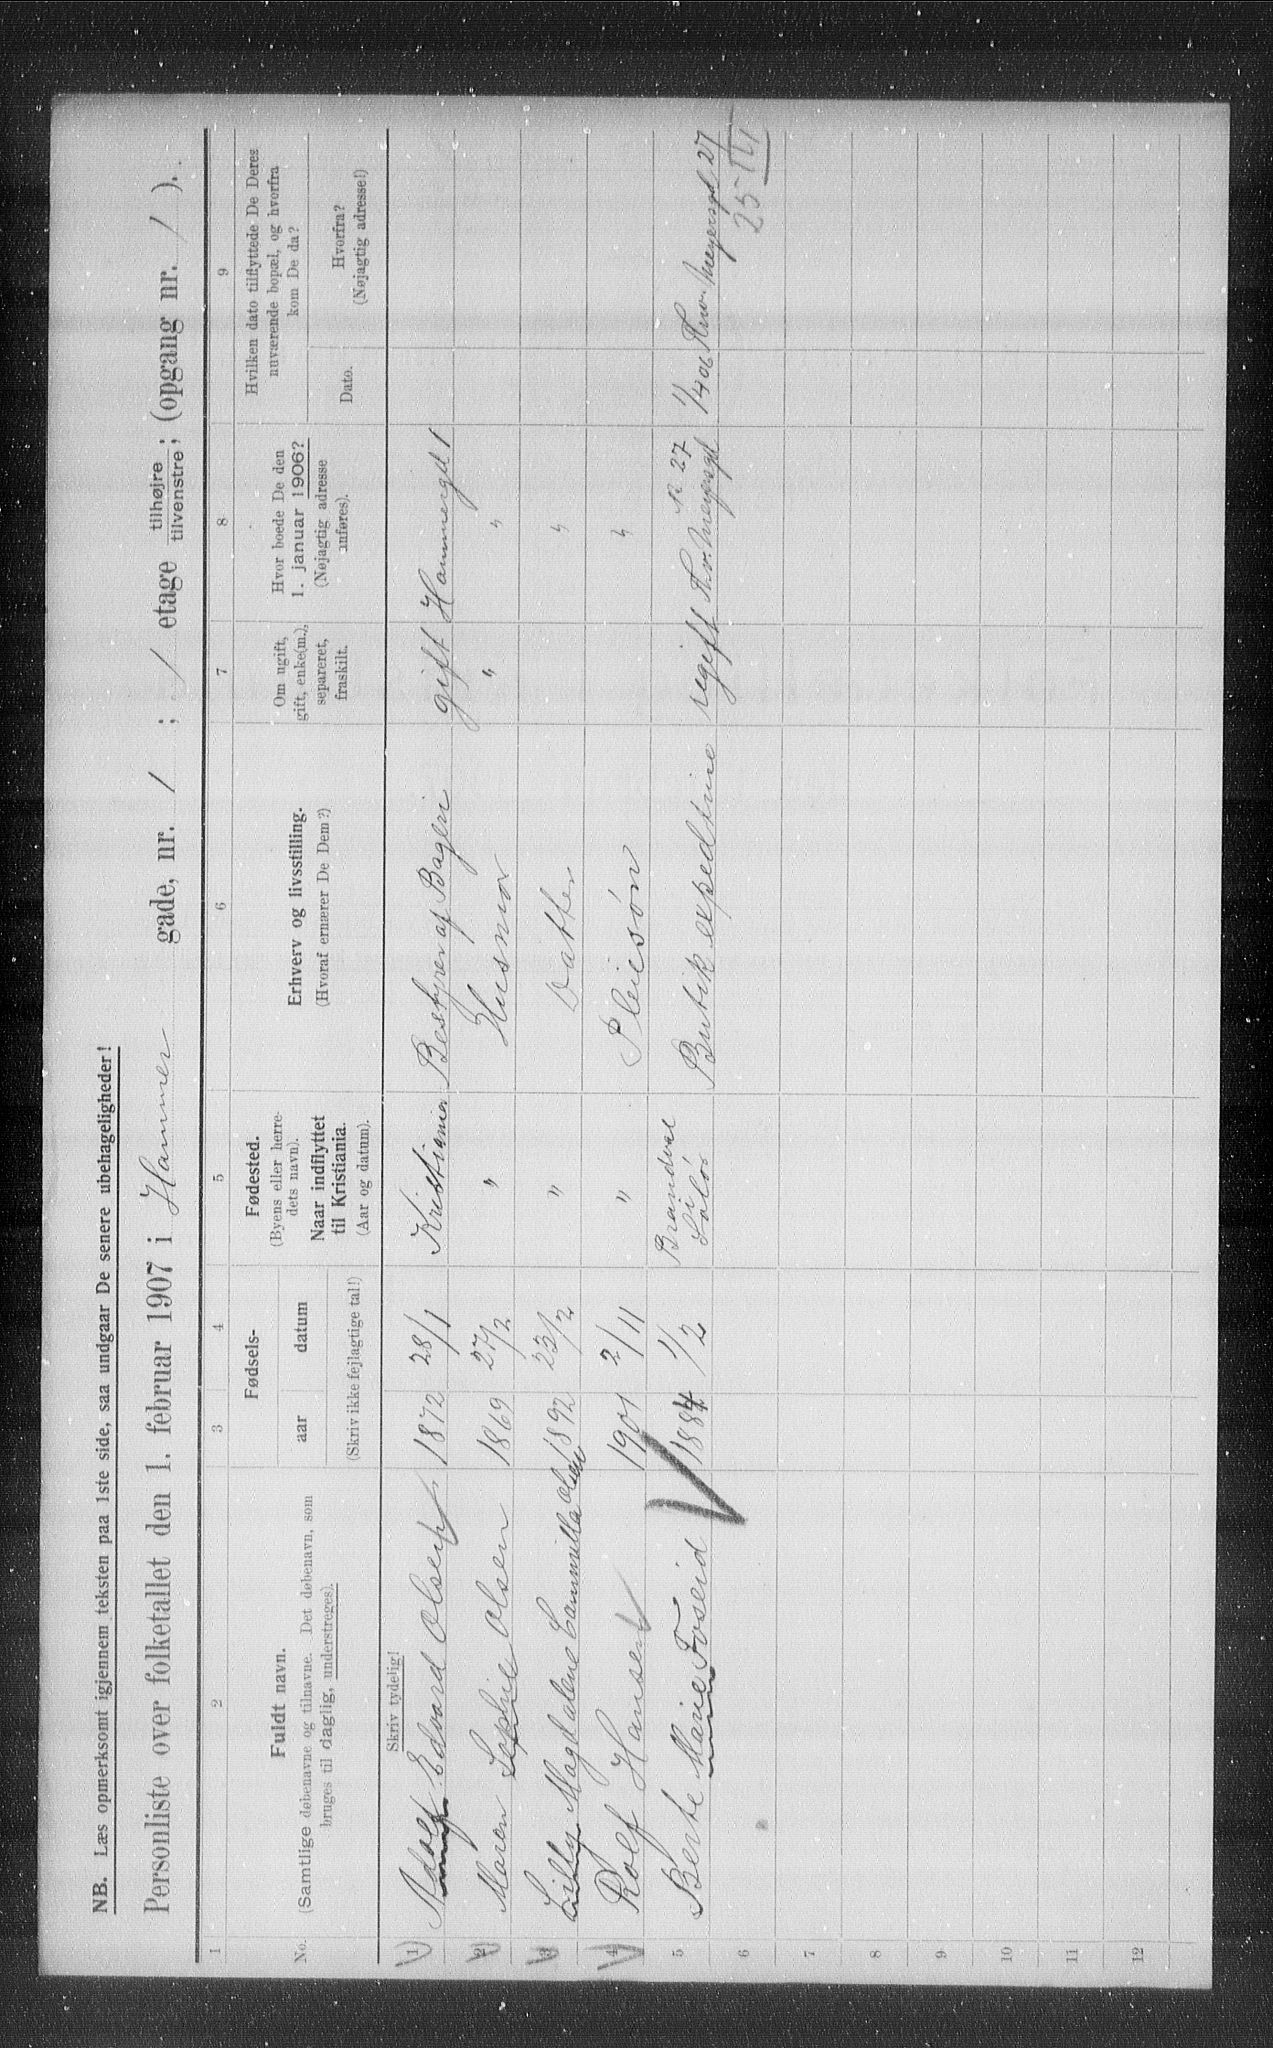 NB. Læs opmerksomt igjennem teksten paa 1ste side, saa undgaar De senere ubehageligheder!
Personliste over folketallet den 1. februar 1907 i Hammer gade, nr. 1 ; 1 etage tilhøjre tilvenstre ; (opgang nr. 1 ).
1 2 3 4 5 6 7 8 9
No.
Fuldt navn.
(Samtlige døbenavne og tilnavne. Det døbenavn, som
bruges til daglig, understreges).
Fødsels-
aar datum
(Skriv ikke fejlagtige tal!)
Fødested.
(Byens eller herre-
dets navn).
Naar indflyttet
til Kristiania.
(Aar og datum).
Erhverv og livsstilling.
(Hvoraf ernærer De Dem?)
Om ugift,
gift, enke(m.),
separeret,
fraskilt.
Hvor boede De den
1. januar 1906?
(Nøjagtig adresse
anføres).
Hvilken dato tilflyttede De Deres
nuværende bopæl, og hvorfra
kom De da?
Dato.
Hvorfra?
(Nøjagtig adresse!)
Skriv tydelig!
1 Adolf Edvard Olsen 1872 28/1 Kristiania Bestyrer af Bageri gift Hammergd 1
2 Maren Sophie Olsen 1869 27/2 " Husmor " "
3 Lilly Magdalene Cammilla Olsen 1892 23/2 " Datter "
4 Rolf Hansen 1901 2/11 " Pleiesøn "
5 Berte Marie Foseid 1884 1/2 Brandval i Solør Butik expeditrice ugift Thv. Meyersgd N 27 1/4 06 Thv. Meyersgd 27
25-III
6
7
8
9
10
11
12